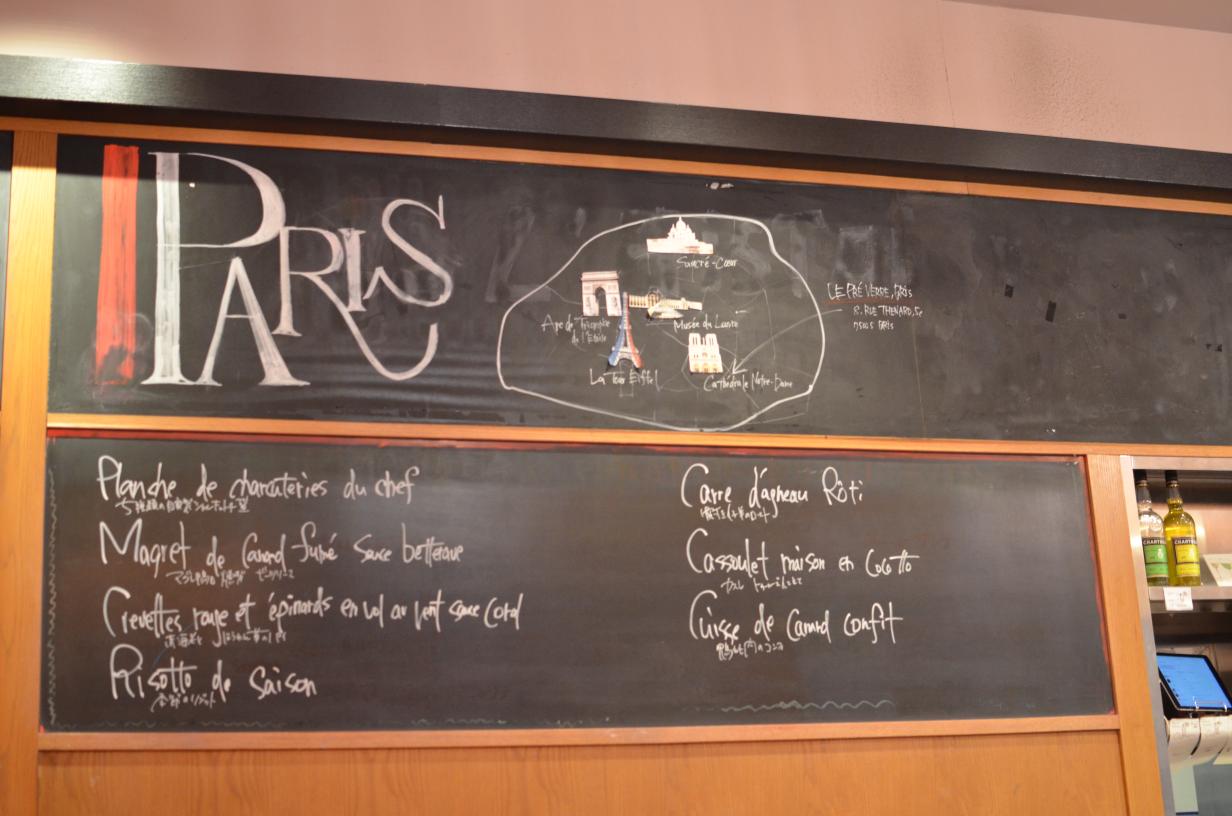 PARIS
Sacré-Cœur
Arc de Triomphe
de l'Étoile
Musée du Louvre
La Tour Eiffel
Cathédrale Notre-Dame
LE PRÉ VERRE, PARIS
RUE THENARD,
75005 PARIS
Planche de charcuteries du chef
Magret de Canard fumé sauce betterave
Crevettes rouge et épinards en vol au vent sauce
Risotto de saison
季節のリゾット
Carre d'agneau Rôti
Cassoulet maison en Cocotte
Cuisse de Canard confit
CHARTR
CHARTR